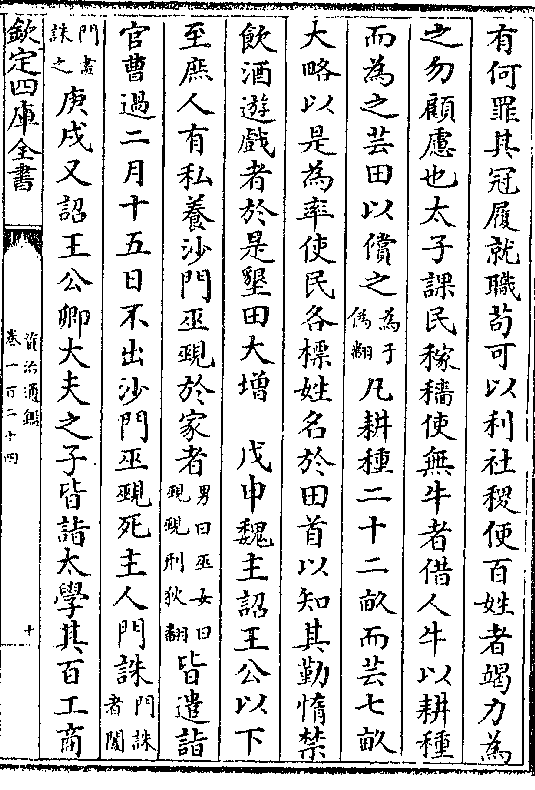 有何罪其冠履就職苟可以利社稷便百姓者竭力為
之勿顧慮也太子課民稼穡使無牛者借人牛以耕種
而為之芸田以償之為于偽翻凡耕種二十二畝而芸七畝
大略以是為率使民各標姓名於田首以知其勤惰禁
飲酒遊戲者於是墾田大增　戊申魏主詔王公以下
至庶人有私養沙門巫覡於家者男曰巫女曰覡覡刑狄翻皆遣詣
官曹過二月十五日不出沙門巫覡死主人門誅門誅者闔
門盡誅之庚戌又詔王公卿大夫之子皆詣太學其百工商
欽定四庫全書
資治通鑑
卷一百二十四
十